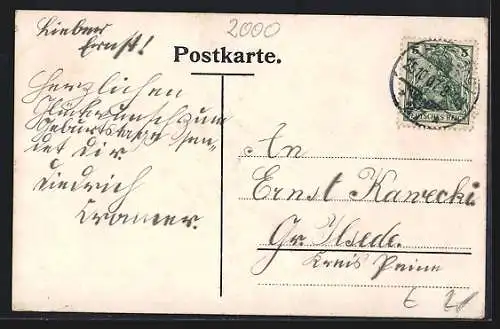 Lieber
Ernst!
2000
Postkarte.
Herzlichen
Glückwunsch zum
Geburtstage sen-
det dir
Diedrich
Cramer.
An
Ernst Kawecki
Gr. Ilsede.
Kreis Peine